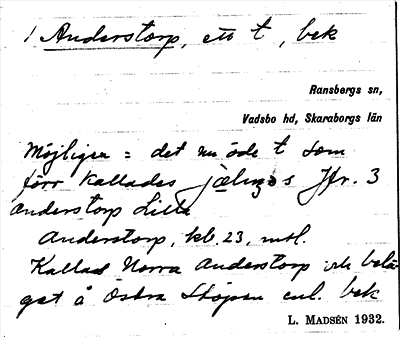 1 Anderstorp, ett t, bek
Ransbergs sn,
Vadsbo hd, Skaraborgs län
Möjligen = det nu öde t som
förr kallades Jfr. 3
Anderstorp Lilla
Anderstorp, kb. 23, mtl.
Kallad Norra Anderstorp och belä-
get å Östra enl. bek
L. MADSÉN 1932.